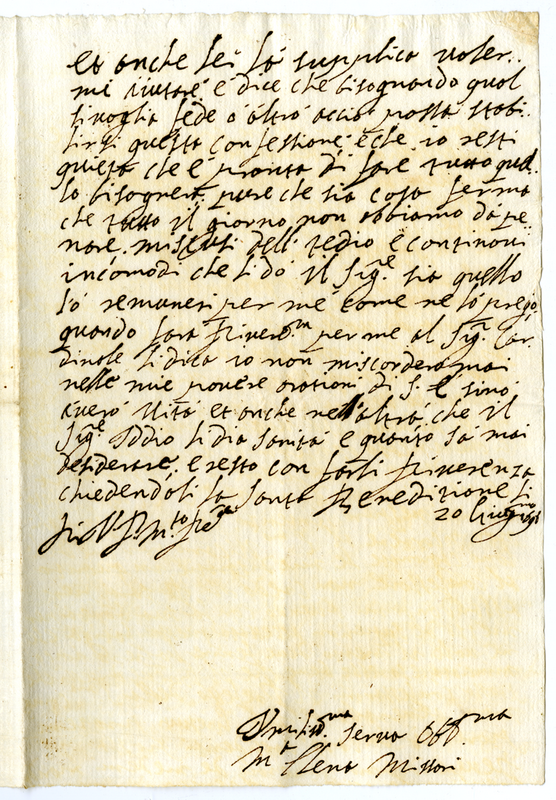 et anche lei lo supplica voler..
mi aiutare e dice che bisognando qual
sivoglia fede o altro acciò possa stabi..
lirsi questa confessione, e che io resti
quieta che è pronta di fare tutto quel..
lo bisognera, pure che sia cosa ferma
che tutto il giorno non abbiamo da pe..
nare, mi scusi dell tedio e continovi
incomodi che li do il Sig.re sia quello
lo remuneri per me come ne lo prego,
quando fara river.a per me al Sig.r Car..
dinale li dica io non mi scordera mai
nelle mie povere orationi di S. E. sino
averò vita et anche nell altra, che il
Sig.re Iddio li dia sanità e quanto sa mai
desiderare, e resto con farli riverenza
chiedendoli la santa Benedizione li
20 Giugno
Di V. P. M.to
Umilis.ma serva Obb.ma
M.a Elena Missori